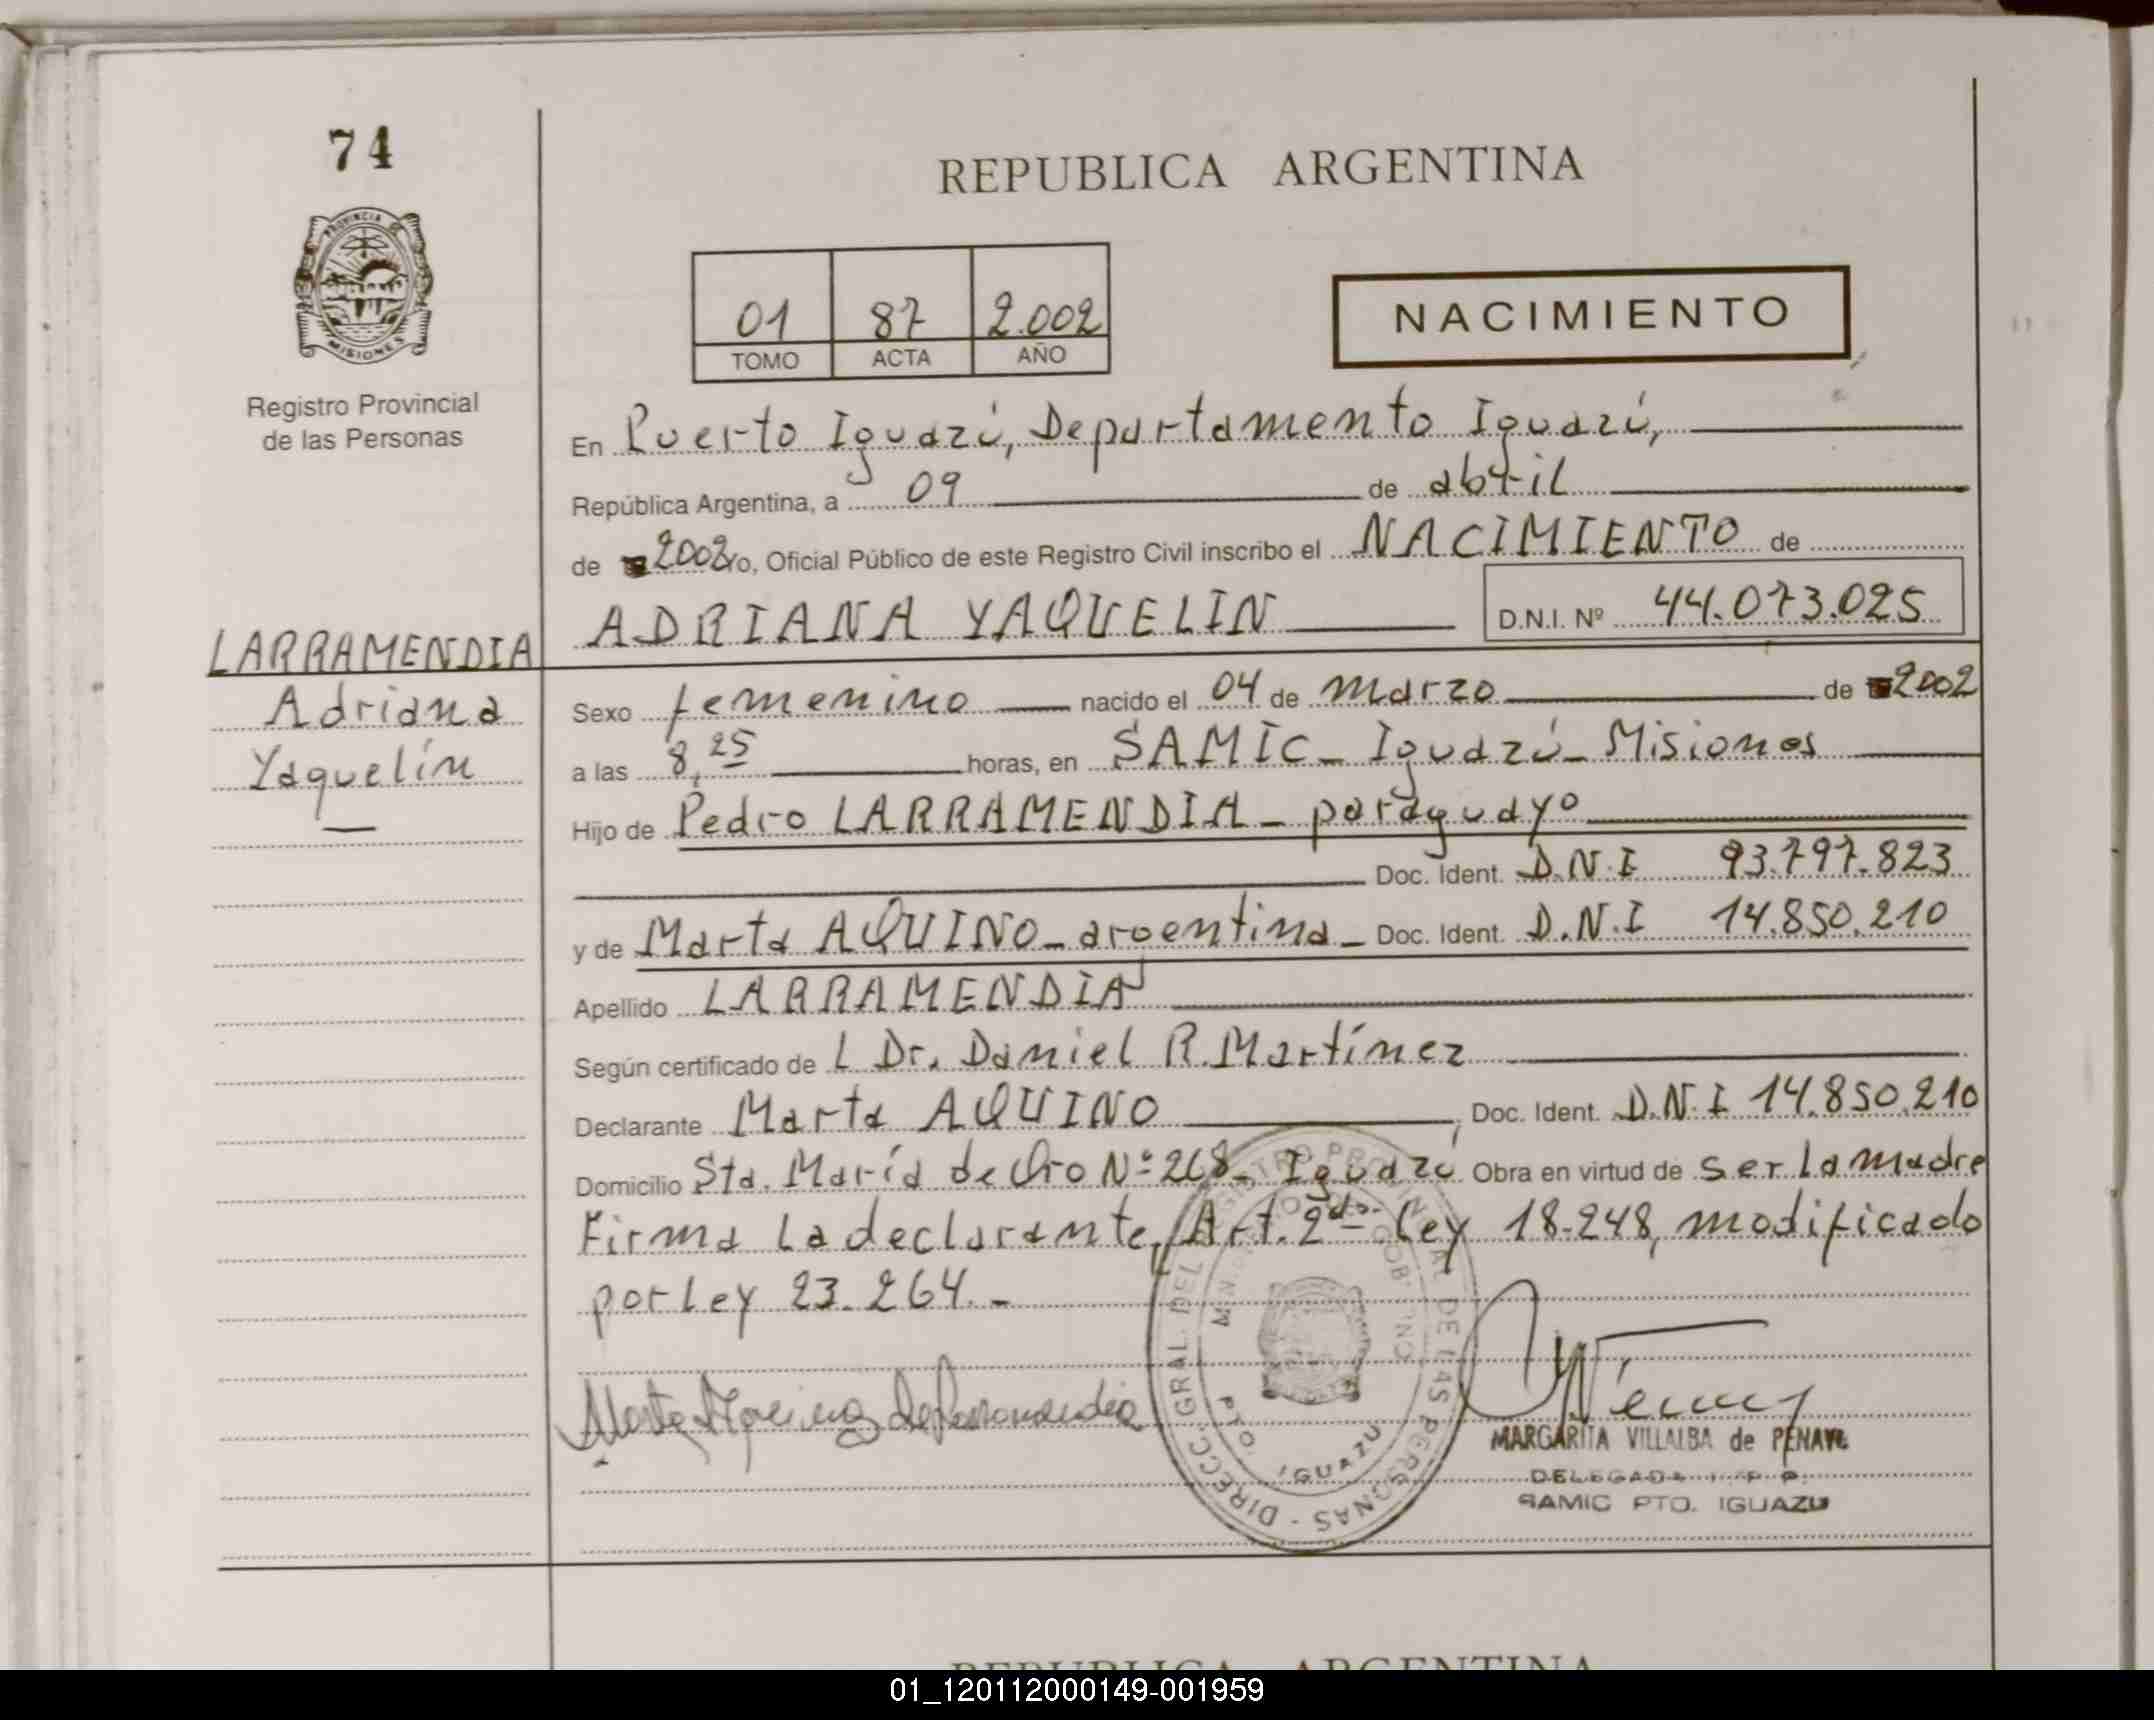 74
REPUBLICA ARGENTINA
PROVINCIA DE
MISIONES
01 87 2.002
TOMO ACTA AÑO
NACIMIENTO
Registro Provincial
de las Personas
En Puerto Iguazú, Departamento Iguazú,
República Argentina, a 09 de abril
de 2002 yo, Oficial Público de este Registro Civil inscribo el NACIMIENTO de
ADRIANA YAQUELIN D.N.I. Nº 44.073.025
LARRAMENDIA
Adriana
Yaquelín
Sexo femenino nacido el 04 de marzo de 2002
a las 8,25 horas, en SAMIC - Iguazú - Misiones
Hijo de Pedro LARRAMENDIA - paraguayo
Doc. Ident. D.N.I 93.797.823
y de Marta AQUINO - argentina - Doc. Ident. D.N.I 14.850.210
Apellido LARRAMENDIA
Según certificado de L Dr. Daniel R. Martínez
Declarante Marta AQUINO, Doc. Ident. D.N.I 14.850.210
Domicilio Sta. María de Oro Nº 268 - Iguazú Obra en virtud de ser la madre
Firma la declarante, Art. 2do Ley 18.248, modificado
por Ley 23.264.-
DIRECC. GRAL. DEL REGISTRO PROVINCIAL DE LAS PERSONAS
IGUAZU
MARGARITA VILLALBA de PENAYO
DELEGADA
SAMIC PTO. IGUAZU
REPUBLICA ARGENTINA
01_120112000149-001959